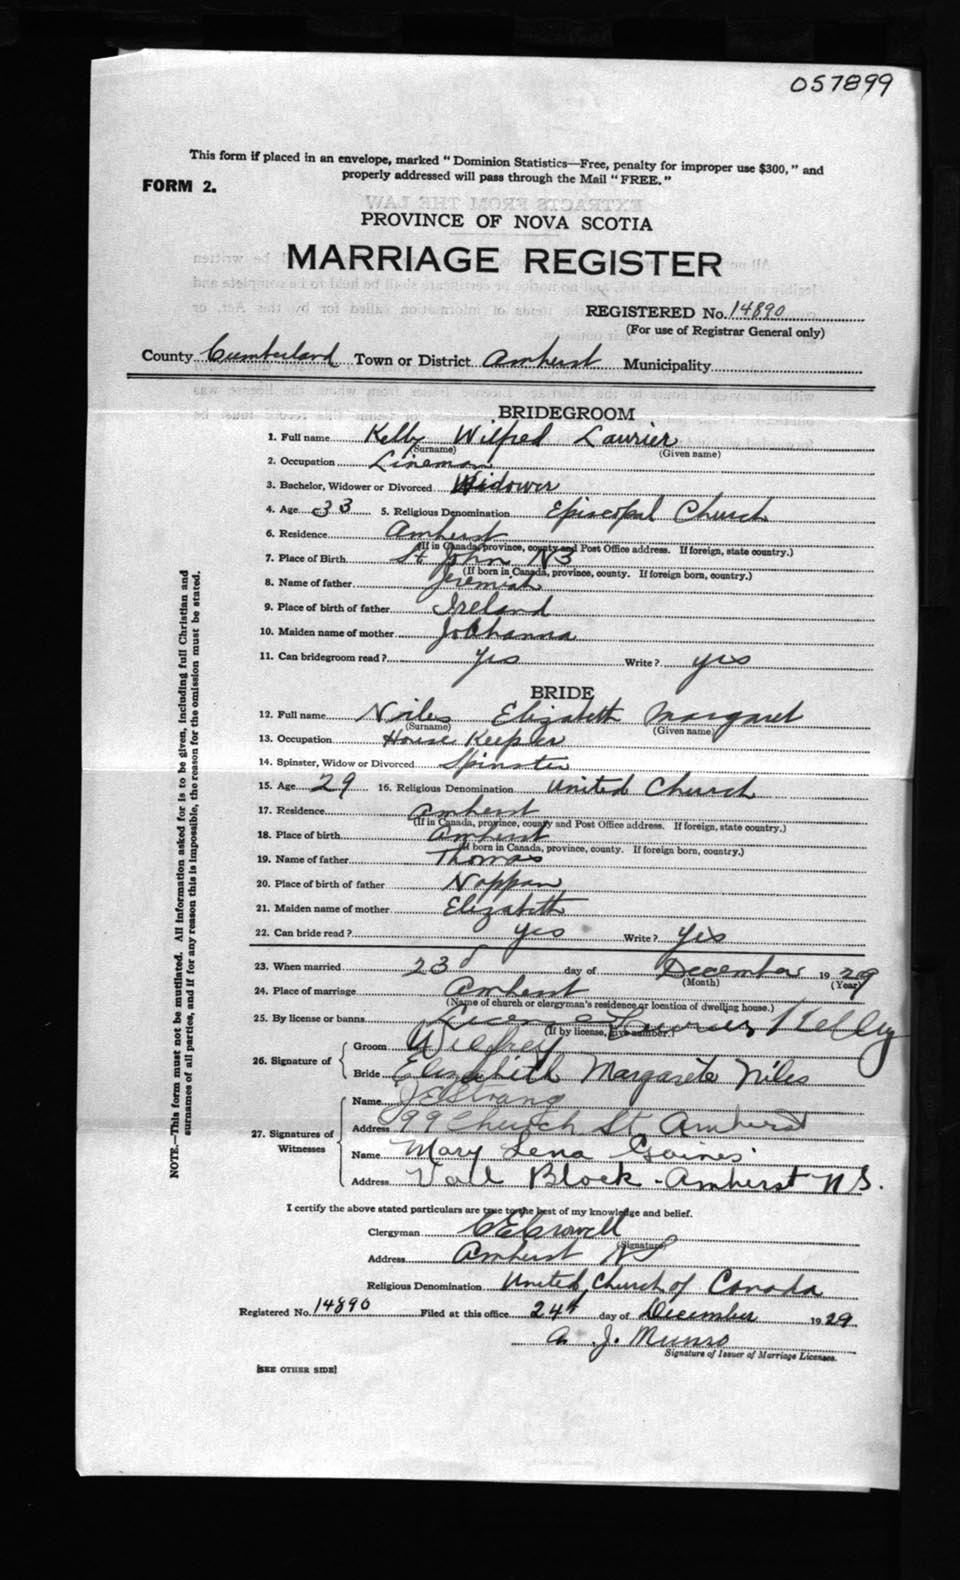 057899
This form if placed in an envelope, marked "Dominion Statistics—Free, penalty for improper use $300," and
properly addressed will pass through the Mail "FREE."
FORM 2.
PROVINCE OF NOVA SCOTIA
MARRIAGE REGISTER
REGISTERED No. 14890
(For use of Registrar General only)
County Cumberland Town or District Amherst Municipality
BRIDEGROOM
1. Full name Kelly Wilfred Laurier
(Surname) (Given name)
2. Occupation Lineman
3. Bachelor, Widower or Divorced Widower
4. Age 33 5. Religious Denomination Episcopal Church
6. Residence Amherst
(If in Canada, province, county and Post Office address. If foreign, state country.)
7. Place of Birth St John NB
(If born in Canada, province, county. If foreign born, country.)
8. Name of father Jeremiah
9. Place of birth of father Ireland
10. Maiden name of mother Johhanna
11. Can bridegroom read? yes Write? yes
BRIDE
12. Full name Niles Elizabeth Margaret
(Surname) (Given name)
13. Occupation House Keeper
14. Spinster, Widow or Divorced Spinster
15. Age 29 16. Religious Denomination United Church
17. Residence Amherst
(If in Canada, province, county and Post Office address. If foreign, state country.)
18. Place of birth Amherst
(If born in Canada, province, county. If foreign born, country.)
19. Name of father Thomas
20. Place of birth of father Nappan
21. Maiden name of mother Elizabeth
22. Can bride read? yes Write? yes
23. When married 23d day of December 1929
(Month) (Year)
24. Place of marriage Amherst
(Name of church or clergyman's residence, or location of dwelling house.)
25. By license or banns License
(If by license, give number.)
26. Signature of Groom Wilfrey Laurier Kelley
Bride Elizabeth Margarete Niles
27. Signatures of Witnesses Name J E Strang
Address 99 Church St Amherst
Name Mary Lena Gaines
Address Block - Amherst N S.
I certify the above stated particulars are true to the best of my knowledge and belief.
Clergyman C E Crowell
(Signature)
Address Amherst NS
Religious Denomination United Church of Canada
Registered No. 14890 Filed at this office 24th day of December 1929
A. J. Munro
Signature of Issuer of Marriage Licenses.
[SEE OTHER SIDE]
NOTE.—This form must not be mutilated. All information asked for is to be given, including full Christian and
surnames of all parties, and if for any reason this is impossible, the reason for the omission must be stated.